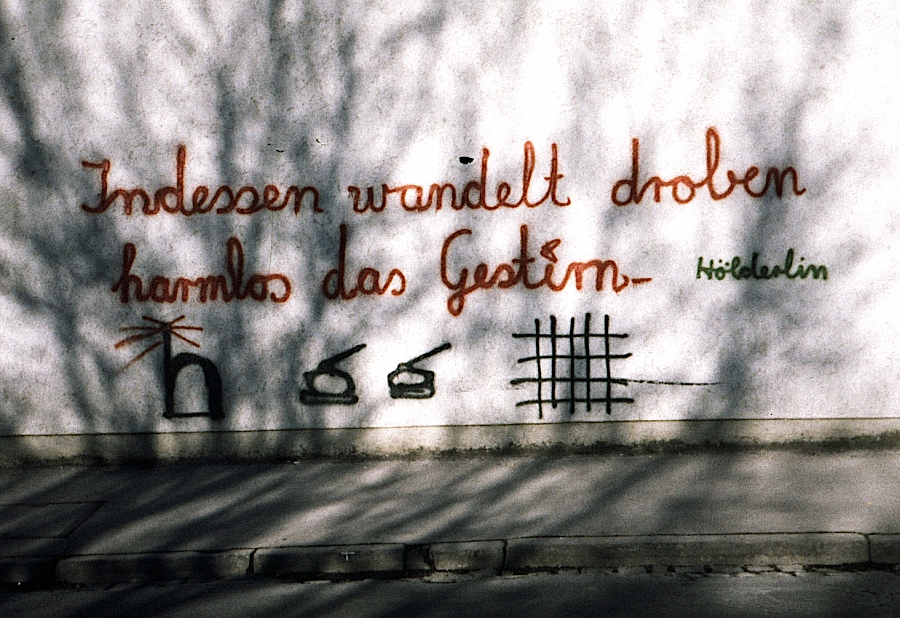 Indessen wandelt droben
harmlos das Gestirn-
Hölderlin